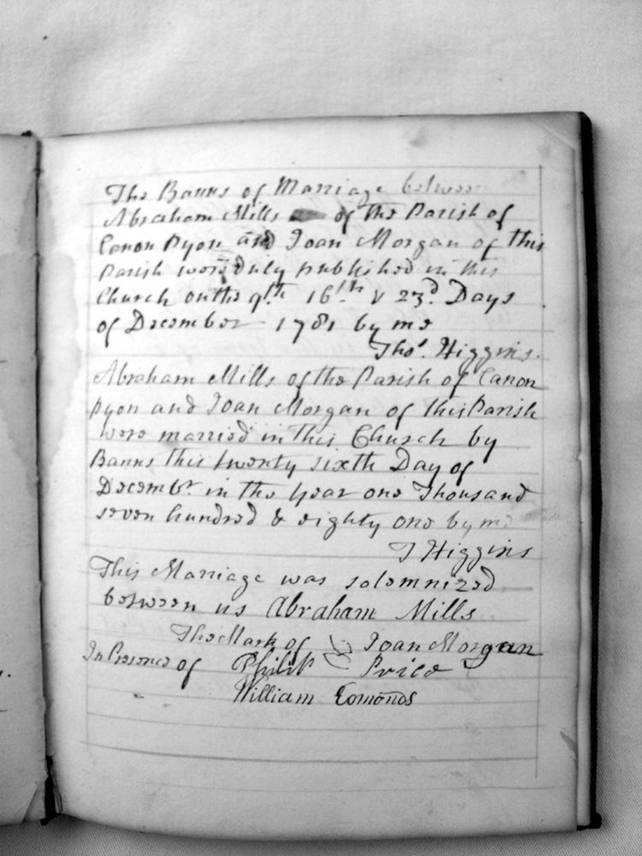 The Banns of Marriage between
Abraham Mills of the Parish of
Canon Pyon and Joan Morgan of this
Parish were duly published in this
Church on the 9th 16th & 23d Days
of December 1781 by me
Thos. Higgins.
Abraham Mills of the Parish of Canon
pyon and Joan Morgan of this Parish
were married in this Church by
Banns this twenty sixth Day of
Decembr. in the year one Thousand
seven hundred & eighty one by me
T Higgins
This Marriage was solemnized
between us Abraham Mills
The Mark of Joan Morgan
In Presence of Philip Price
William Edmonds